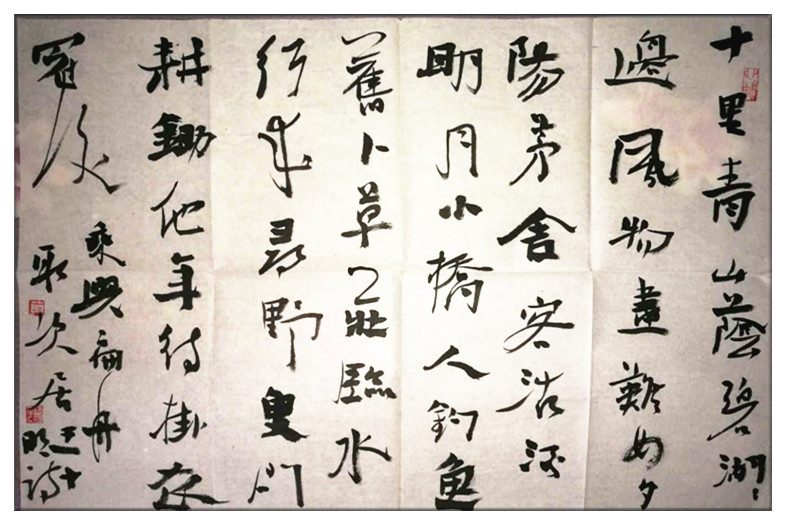 十里青山蔭碧湖〻
邊風物畫難如夕
陽茅舍客沽酒
明月小橋人釣魚
舊卜草莊臨水
竹來尋野叟問
耕鋤他年待掛衣
冠後乘興扁舟
取次居
明詩